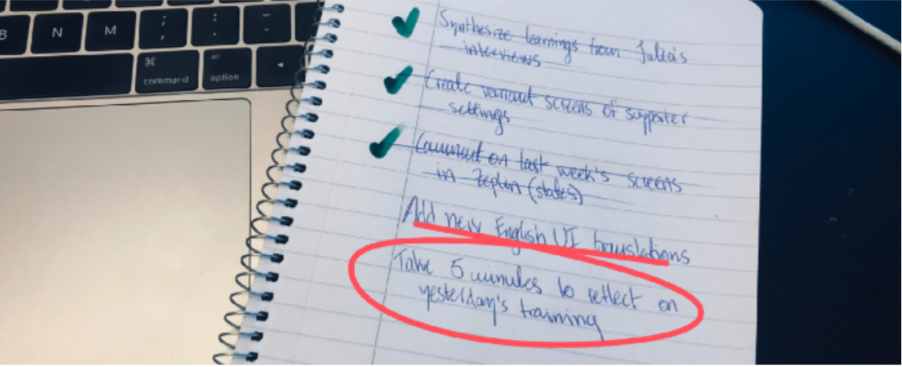 B N M
:
;
<
,
⌘
command
option
Synthesize learnings from Julia's
interviews
Create variant screens of supporter
settings
Comment on last week's screens
in Zeplin (states)
Add new English UI translations
Take 5 minutes to reflect on
yesterday's training